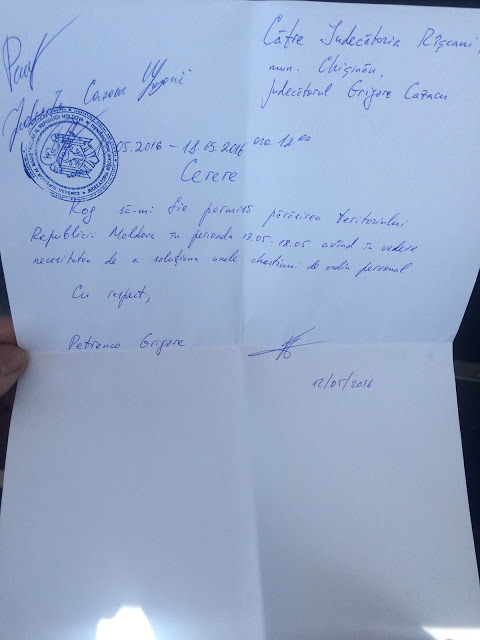 Către Judecătoria Rîșcani,
mun. Chișinău,
Judecătorul Grigore Cazacu
Cazacu
05.2016 – 18.05.2016 ora 12 00
Cerere
Rog să-mi fie permisă părăsirea teritoriului
Republicii Moldova în perioada 13.05-18.05 avînd în vedere
necesitatea de a soluționa unele chestiuni de ordin personal.
Cu respect,
Petrenco Grigore
12/05/2016